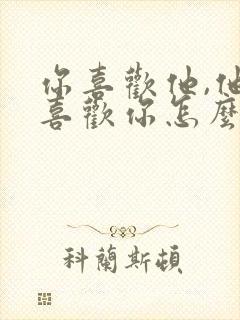 你喜歡他,他
喜歡你怎麼
科蘭斯頓